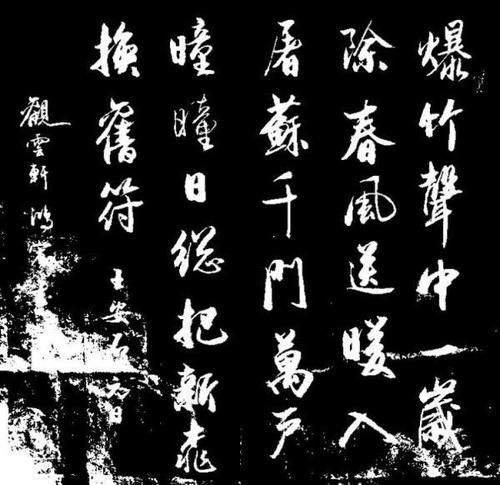 爆竹聲中一歲
除春風送暖入
屠蘇千門萬戶
曈曈日總把新桃
換舊符 王安石元日
觀雲軒